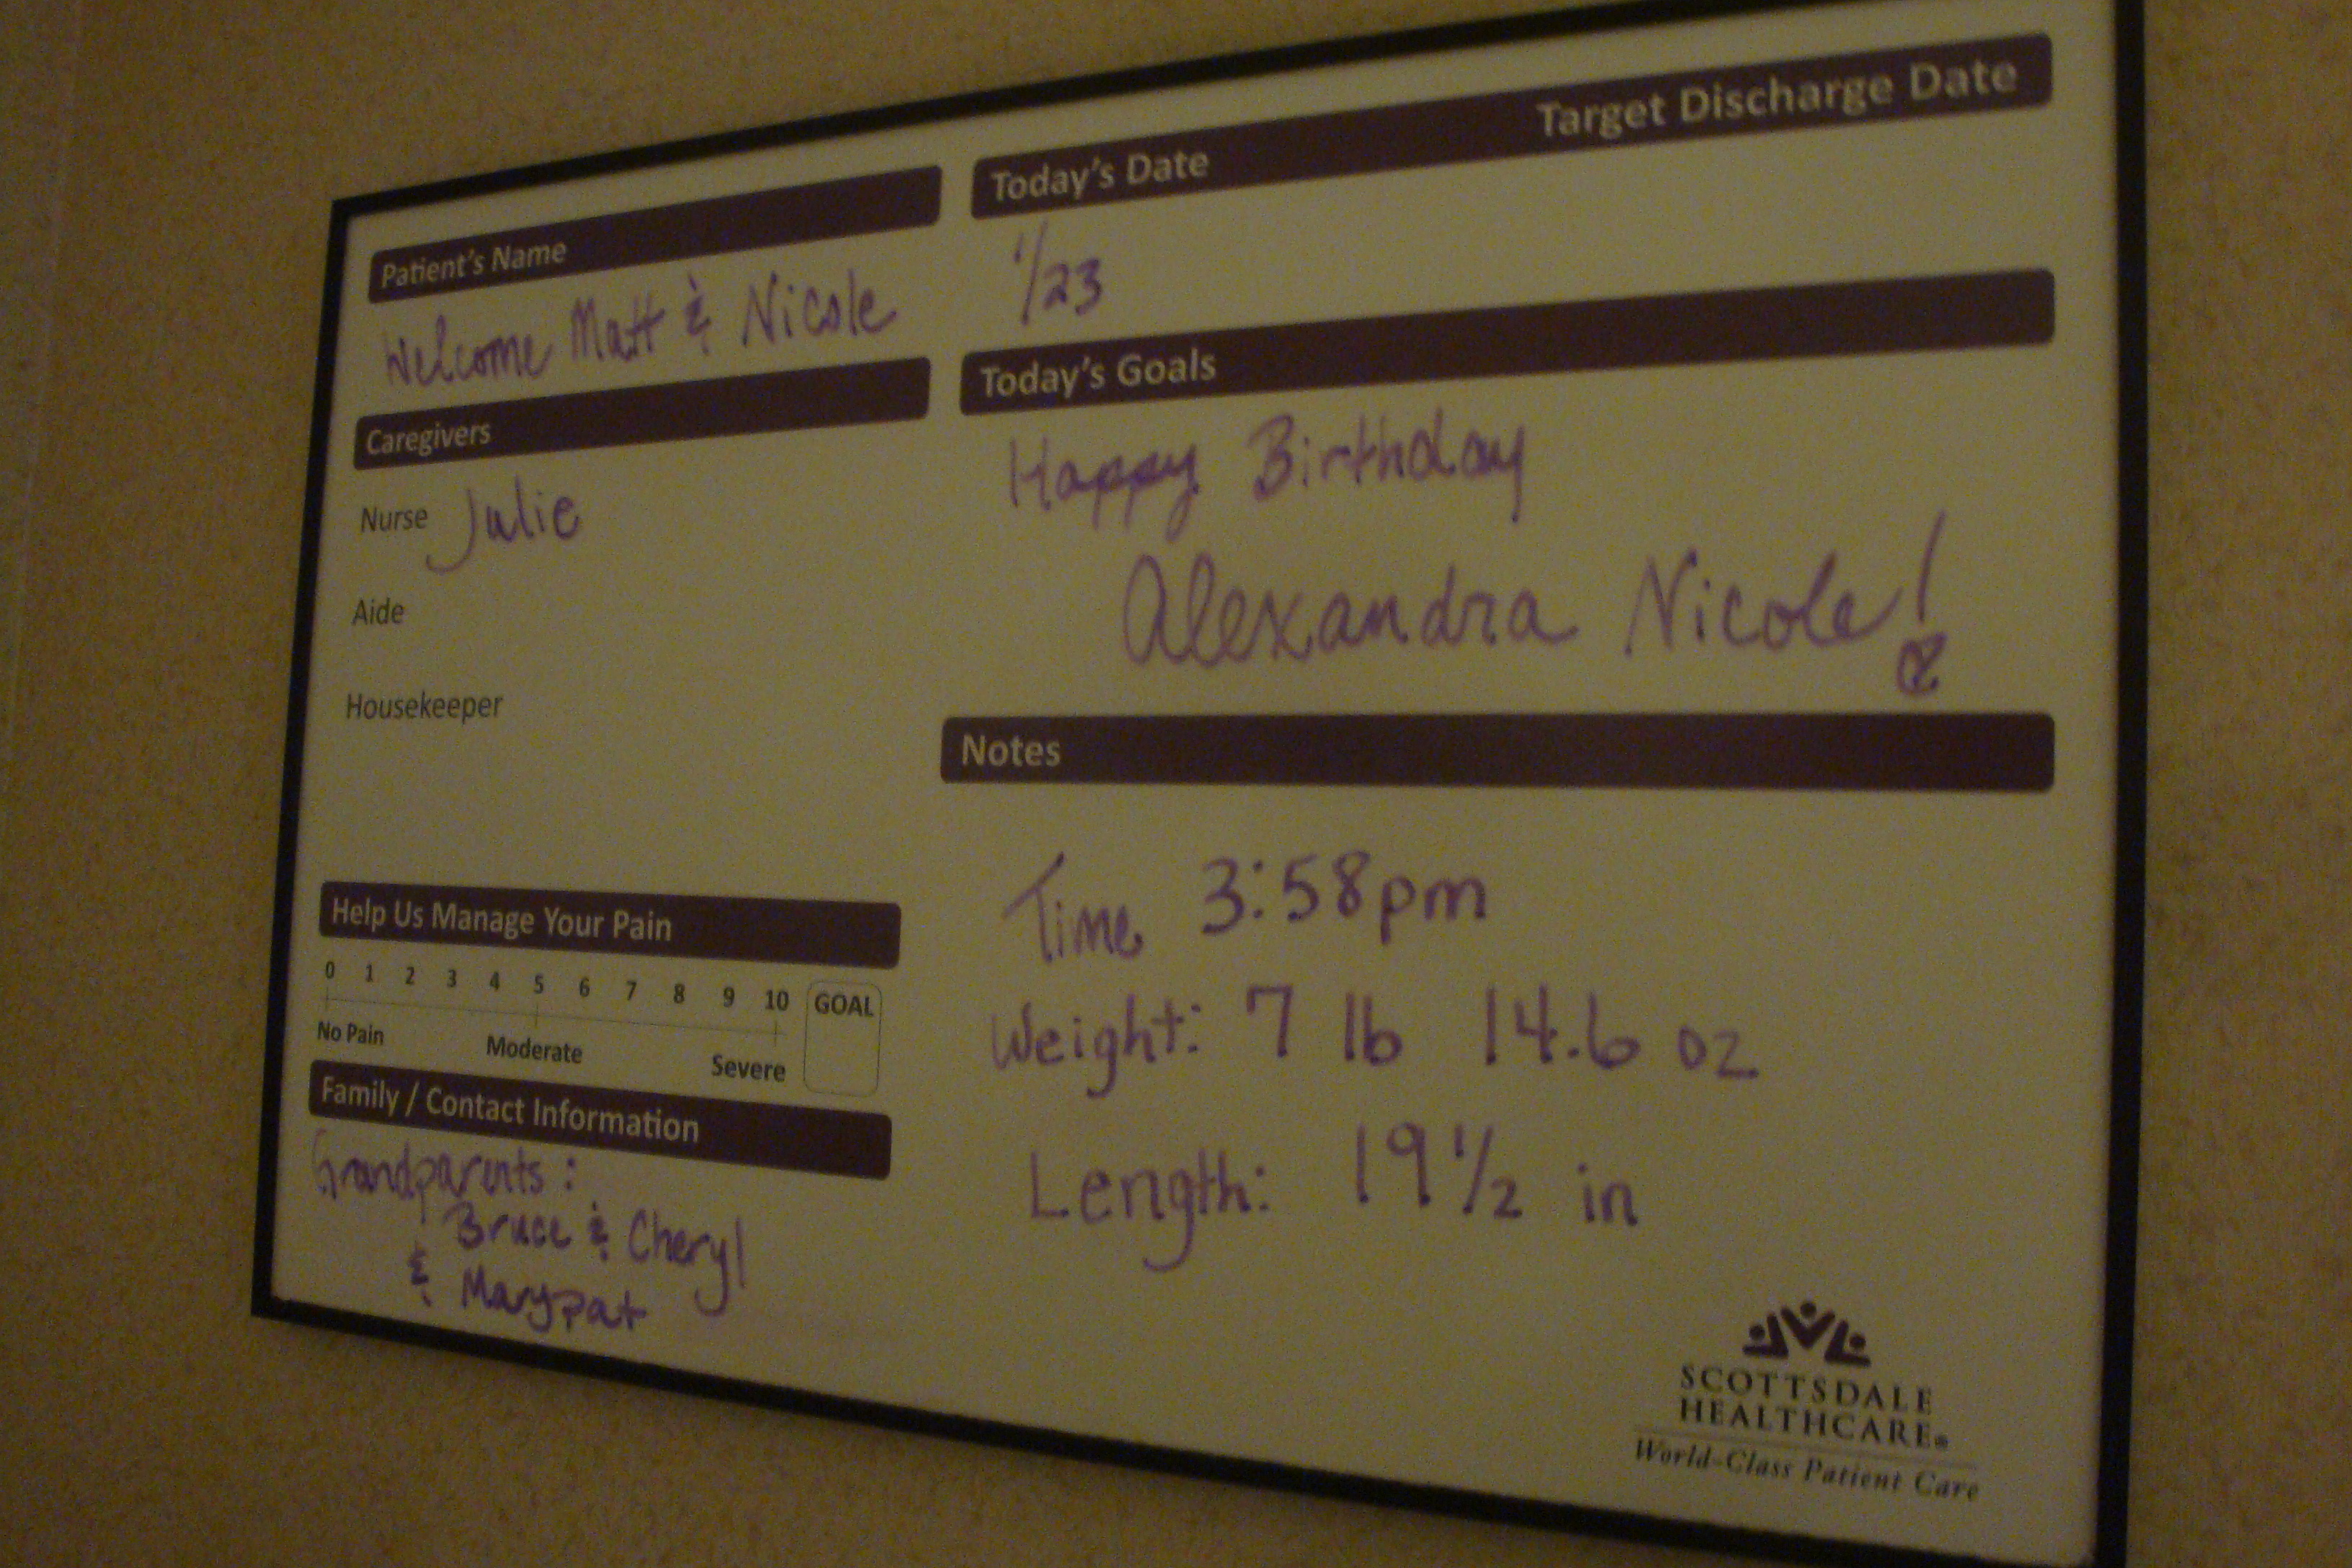 Patient's Name
Welcome Matt & Nicole
Caregivers
Nurse Julie
Aide
Housekeeper
Help Us Manage Your Pain
0 1 2 3 4 5 6 7 8 9 10 GOAL
No Pain Moderate Severe
Family / Contact Information
Grandparents:
Bruce & Cheryl
& Marypat
Today's Date Target Discharge Date
1/23
Today's Goals
Happy Birthday
Alexandra Nicole!
Notes
Time 3:58pm
Weight: 7 lb 14.6 oz
Length: 19 1/2 in
SCOTTSDALE
HEALTHCARE®
World-Class Patient Care